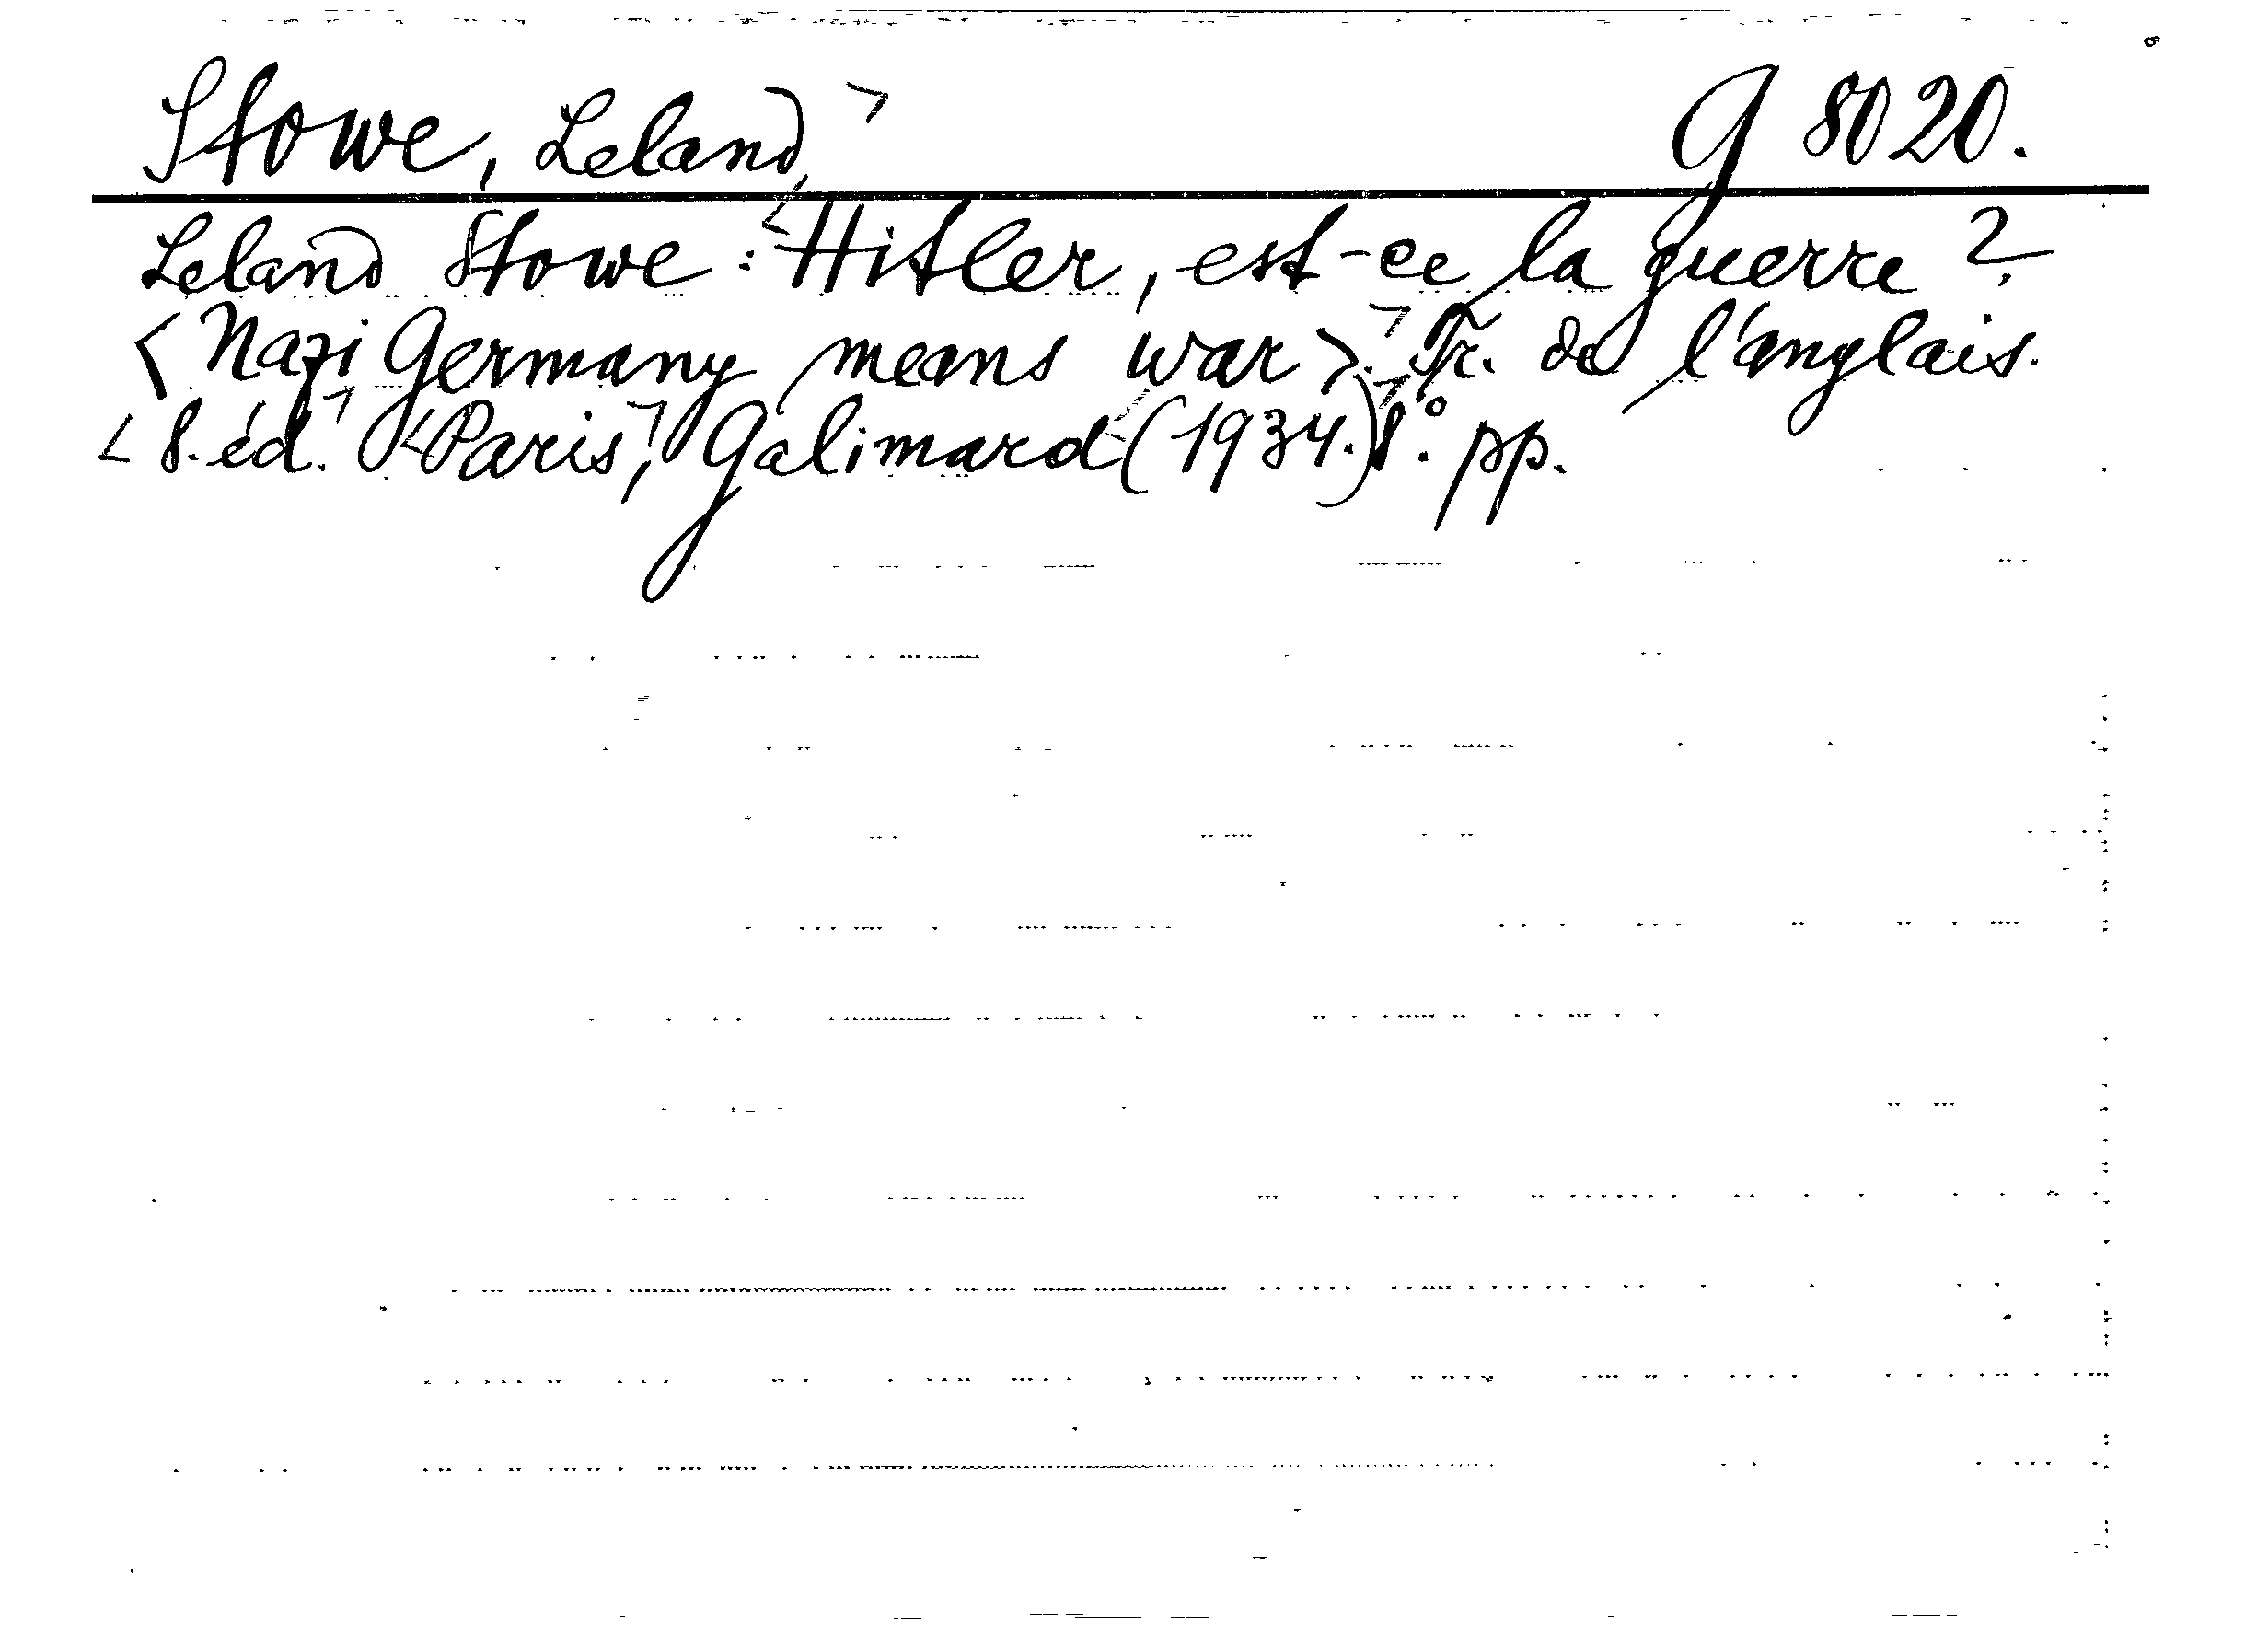 Stowe, Leland, G 8020.
Leland Stowe: Hitler, est-ce la guerre?
<Nazi Germany means war>. Tr. de l'anglais.
8. éd. Paris, Galimard (1934.) 8°. pp.